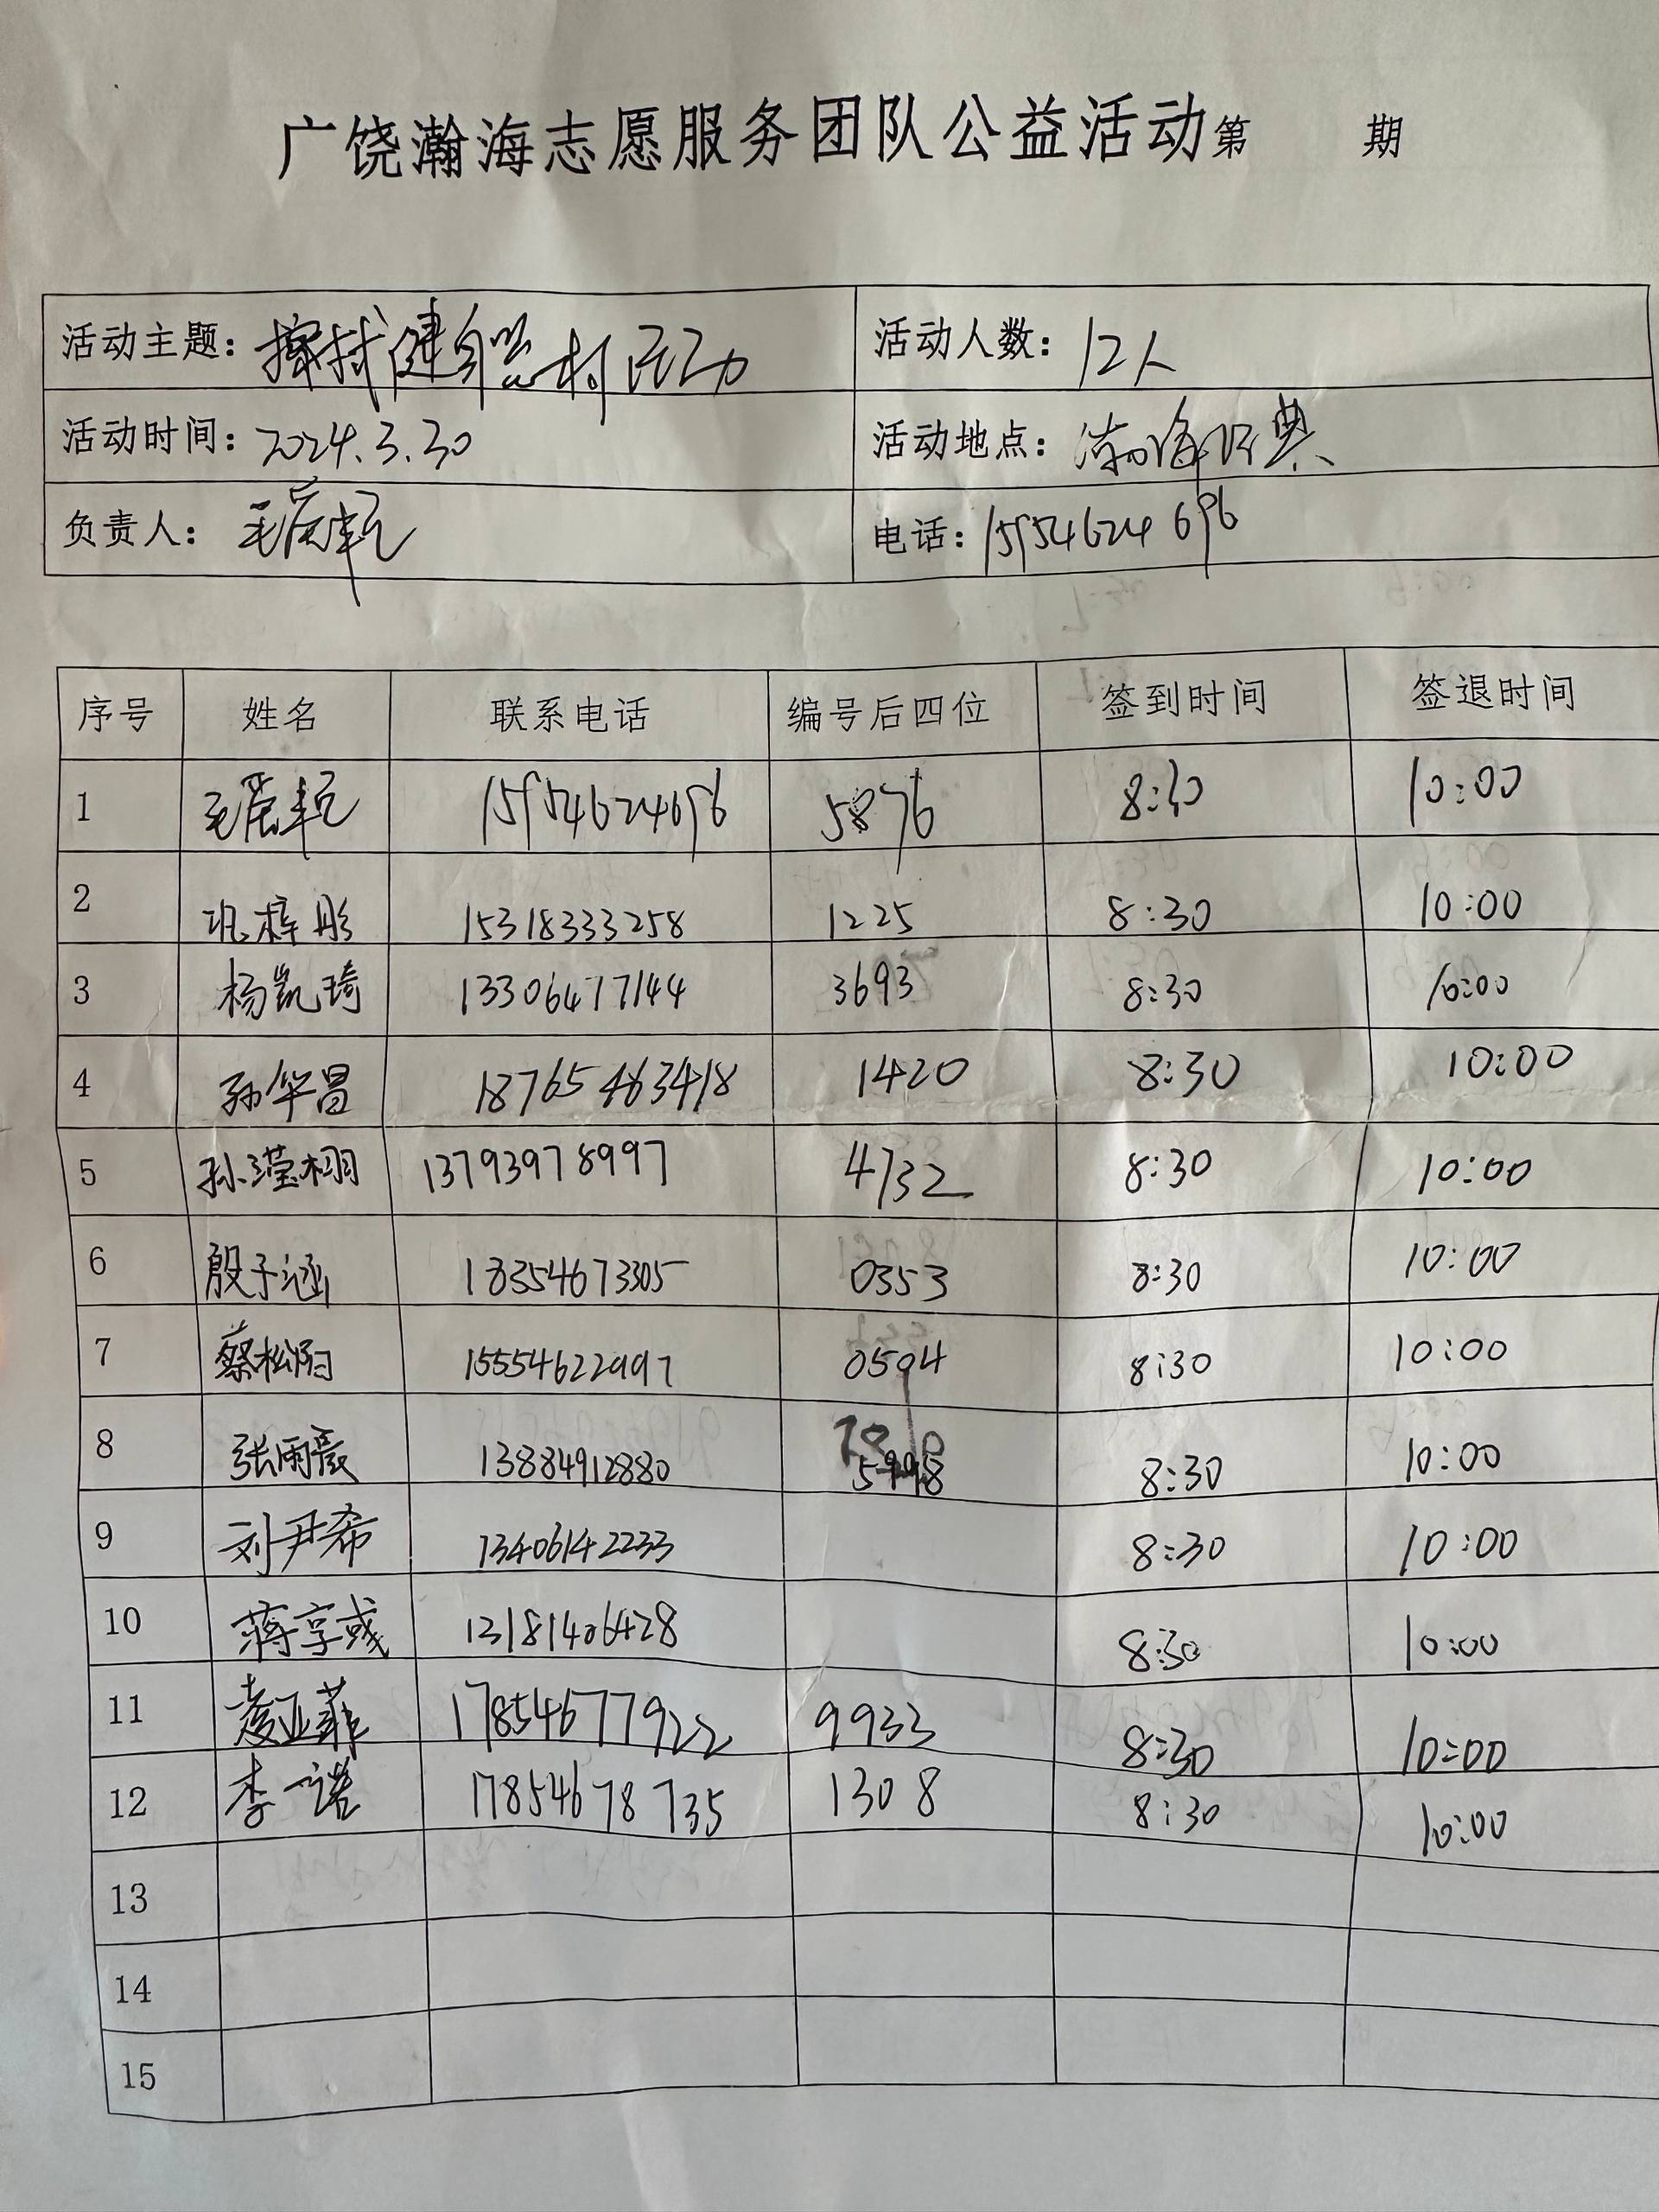 广饶瀚海志愿服务团队公益活动第 期
活动主题：擦拭健身器材活动 活动人数：12人
活动时间：2024.3.30 活动地点：瀚海经典
负责人：毛 电话：15954624696
序号 姓名 联系电话 编号后四位 签到时间 签退时间
1 毛 15954624696 5876 8:30 10:00
2 巩梓彤 15318333258 1225 8:30 10:00
3 杨凯琦 13306477144 3693 8:30 10:00
4 孙华昌 18765463418 1420 8:30 10:00
5 孙滢栩 13793978997 4732 8:30 10:00
6 殷子涵 18354673305 0353 8:30 10:00
7 蔡松 15554622997 0594 8:30 10:00
8 张雨 13884912880 8:30 10:00
9 刘尹希 13406142233 8:30 10:00
10 蒋享彧 13181406428 8:30 10:00
11 亚菲 17854677922 9933 8:30 10:00
12 李一诺 17854678735 1308 8:30 10:00
13
14
15